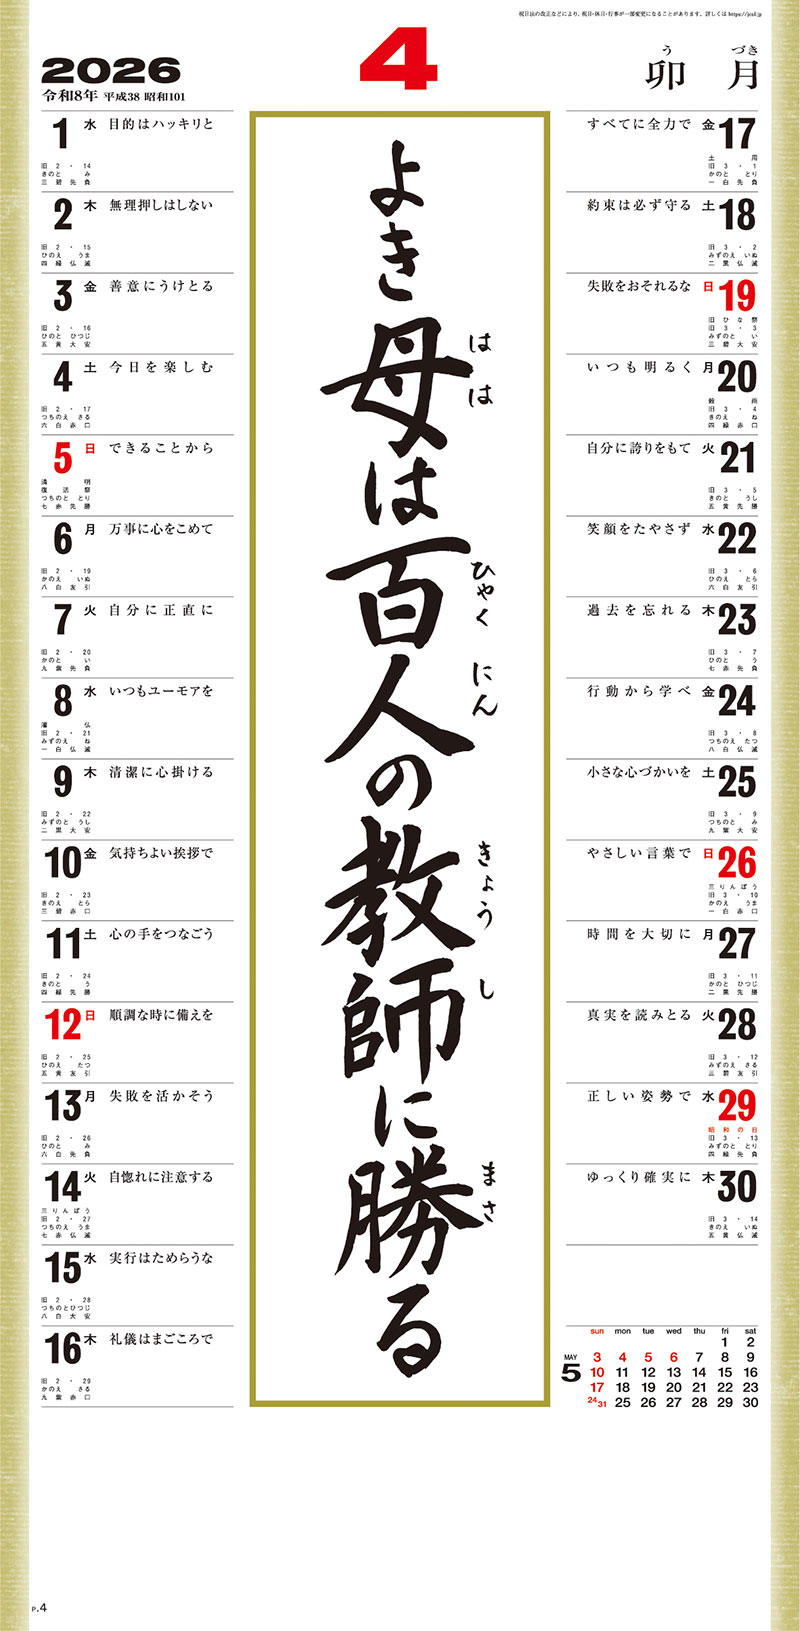 祝日法の改正などにより、祝日・休日・行事が一部変更になることがあります。詳しくは https://jcal.jp
2026
令和8年 平成38 昭和101
4
う づき
卯月
よき母は百人の教師に勝る
はは
ひゃくにん
きょうし
まさ
1 水 目的はハッキリと
旧2・14
きのと み
三碧先負
2 木 無理押しはしない
旧2・15
ひのえ うま
四緑仏滅
3 金 善意にうけとる
旧2・16
ひのと ひつじ
五黄大安
4 土 今日を楽しむ
旧2・17
つちのえ さる
六白赤口
5 日 できることから
清明
復活祭
つちのと とり
七赤先勝
6 月 万事に心をこめて
旧2・19
かのえ いぬ
八白友引
7 火 自分に正直に
旧2・20
かのと い
九紫先負
8 水 いつもユーモアを
灌仏
旧2・21
みずのえ ね
一白仏滅
9 木 清潔に心掛ける
旧2・22
みずのと うし
二黒大安
10 金 気持ちよい挨拶で
旧2・23
きのえ とら
三碧赤口
11 土 心の手をつなごう
旧2・24
きのと う
四緑先勝
12 日 順調な時に備えを
旧2・25
ひのえ たつ
五黄友引
13 月 失敗を活かそう
旧2・26
ひのと み
六白先負
14 火 自惚れに注意する
三りんぼう
旧2・27
つちのえ うま
七赤仏滅
15 水 実行はためらうな
旧2・28
つちのとひつじ
八白大安
16 木 礼儀はまごころで
旧2・29
かのえ さる
九紫赤口
すべてに全力で 金 17
土用
旧3・1
かのと とり
一白先負
約束は必ず守る 土 18
旧3・2
みずのえ いぬ
二黒仏滅
失敗をおそれるな 日 19
旧ひな祭
旧3・3
みずのと い
三碧大安
いつも明るく 月 20
穀雨
旧3・4
きのえ ね
四緑赤口
自分に誇りをもて 火 21
旧3・5
きのと うし
五黄先勝
笑顔をたやさず 水 22
旧3・6
ひのえ とら
六白友引
過去を忘れる 木 23
旧3・7
ひのと う
七赤先負
行動から学べ 金 24
旧3・8
つちのえ たつ
八白仏滅
小さな心づかいを 土 25
旧3・9
つちのと み
九紫大安
やさしい言葉で 日 26
三りんぼう
旧3・10
かのえ うま
一白赤口
時間を大切に 月 27
旧3・11
かのと ひつじ
二黒先勝
真実を読みとる 火 28
旧3・12
みずのえ さる
三碧友引
正しい姿勢で 水 29
昭和の日
旧3・13
みずのと とり
四緑先負
ゆっくり確実に 木 30
旧3・14
きのえ いぬ
五黄仏滅
MAY 5
sun mon tue wed thu fri sat
1 2
3 4 5 6 7 8 9
10 11 12 13 14 15 16
17 18 19 20 21 22 23
24/31 25 26 27 28 29 30
P.4